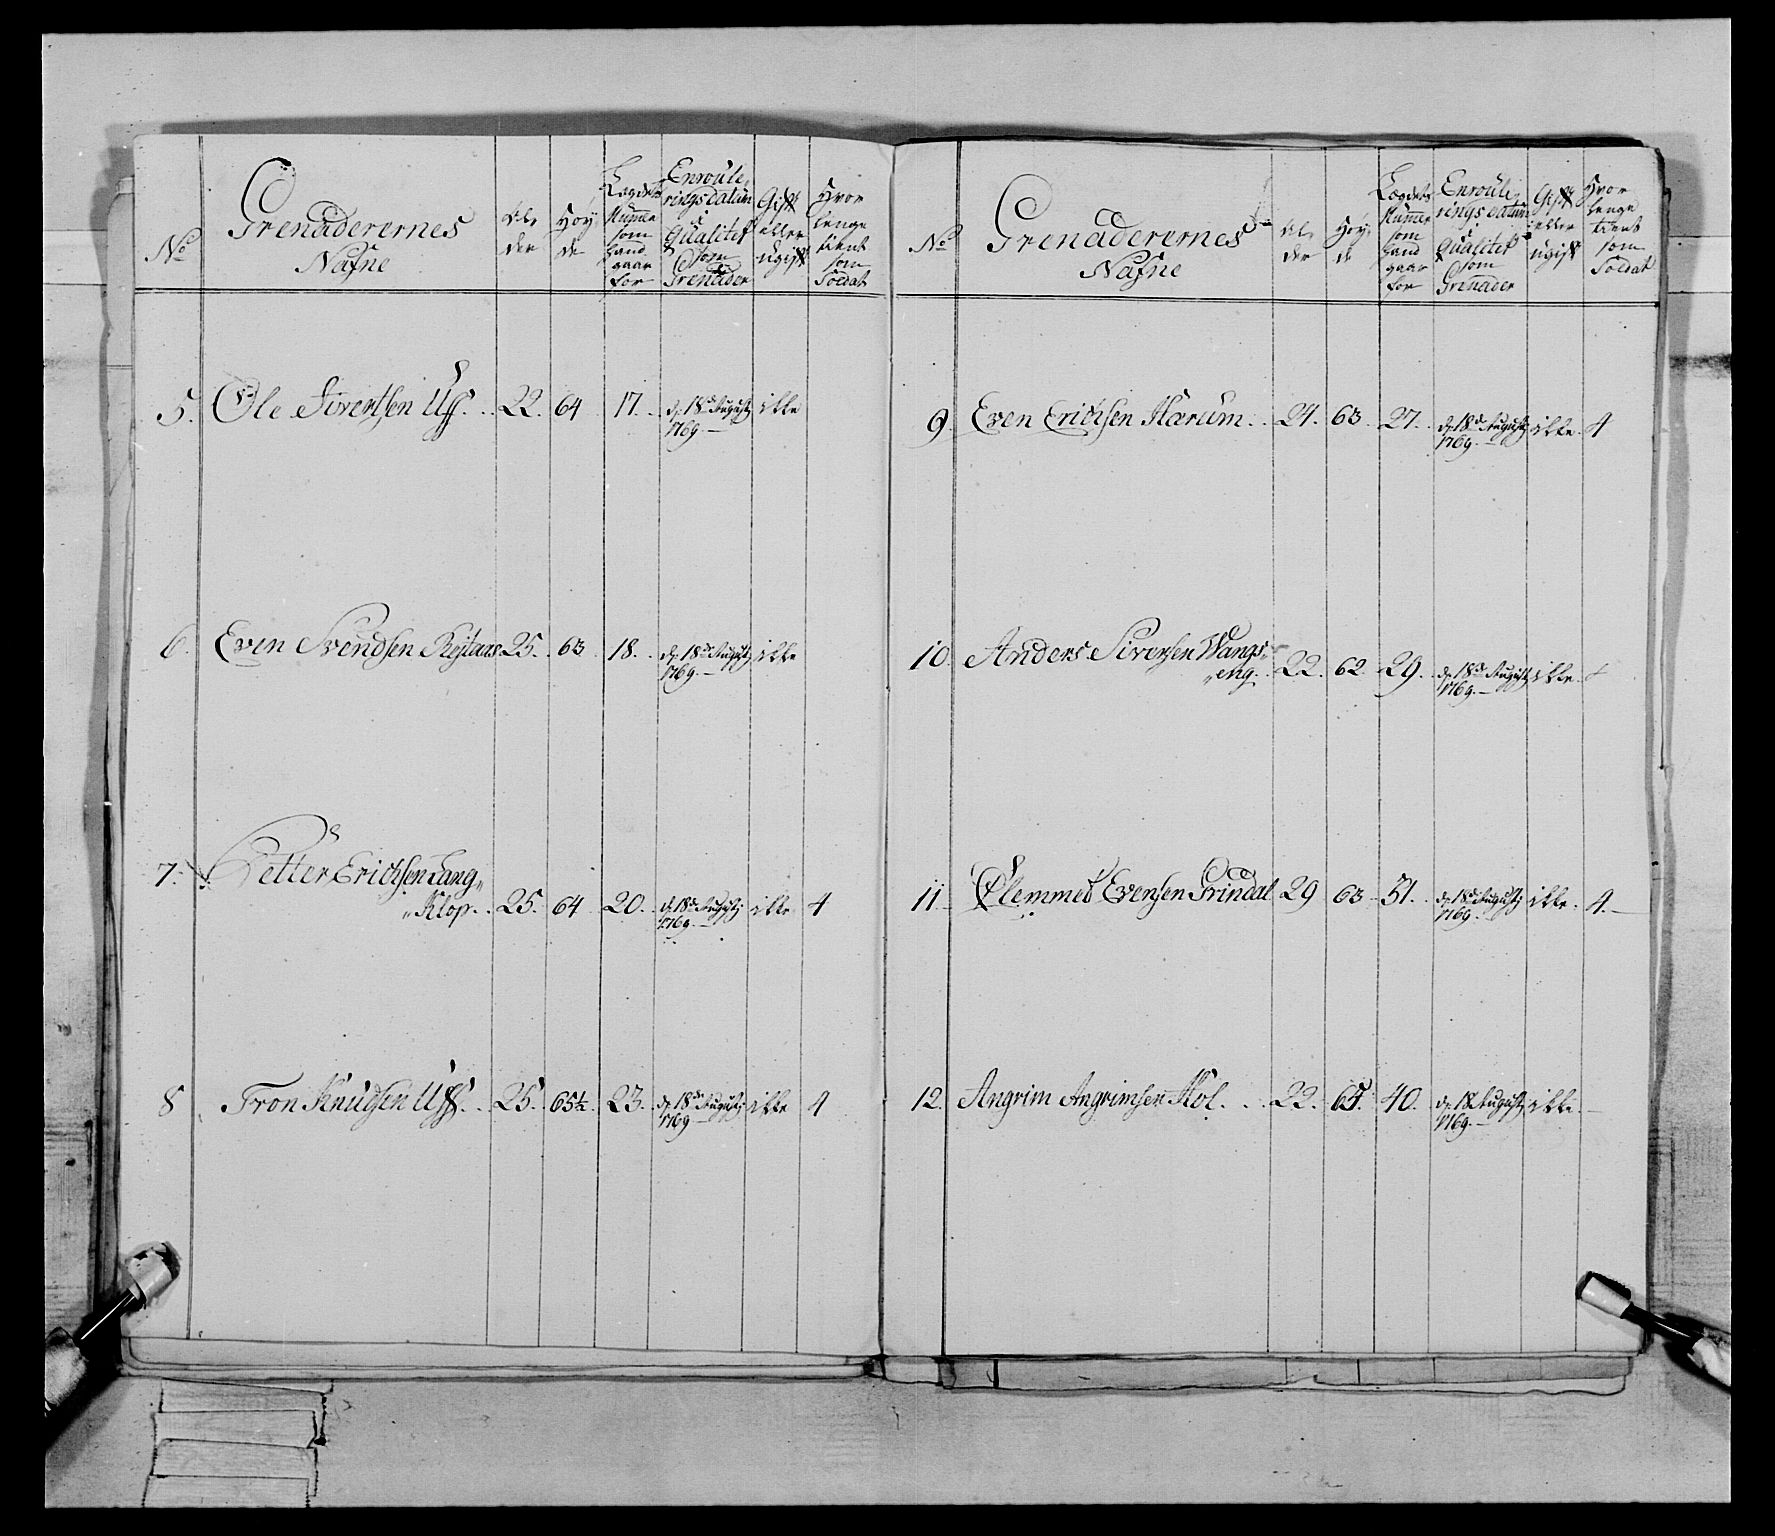 No
Grenaderernes
Nafne
Al,
der
Höy,
de
Lægdets
Numer
som
hand
gaar
for
Enroule,
rings datum
i
Qualitet
som
Grenader
Gift
eller
ugift
Hvor
lenge
tient
som
Soldat
5. Ole Siversen Uff. . 22. 64 17. d. 18de Augusty ikke
1769.
6. Even Svendsen 25. 63 18. d. 18de Augusty ikke
1769.
7. Petter Erichsen Lang,
"Klop. . 25. 64 20. d. 18de Augusty ikke 4
1769.
8 Tron Knudsen Uff. . 25. 65½ 23. d. 18de Augusty ikke 4
1769
No
Grenaderernes
Nafne
Al,
der
Höy,
de
Lægdets
Numer
som
hand
gaar
for
Enroule,
rings datum
i
Qualitet
som
Grenader
Gift
eller
ugift
Hvor
lenge
tient
som
Soldat
9. Even Erichsen Harum. . 24. 63 27. d. 18de Augusty ikke. 4
1769.
10. Anders Siversen Wangs,
"eng. . 22. 62 29. d. 18de Augusty ikke.
1769.
11. Clemmed Evensen Grindal 29 63 31. d. 18de Augusty ikke. 4.
1769
12. Angrim Angrimsen Hol. . . 22. 64. 40. d. 18 Augusty ikke.
1769.